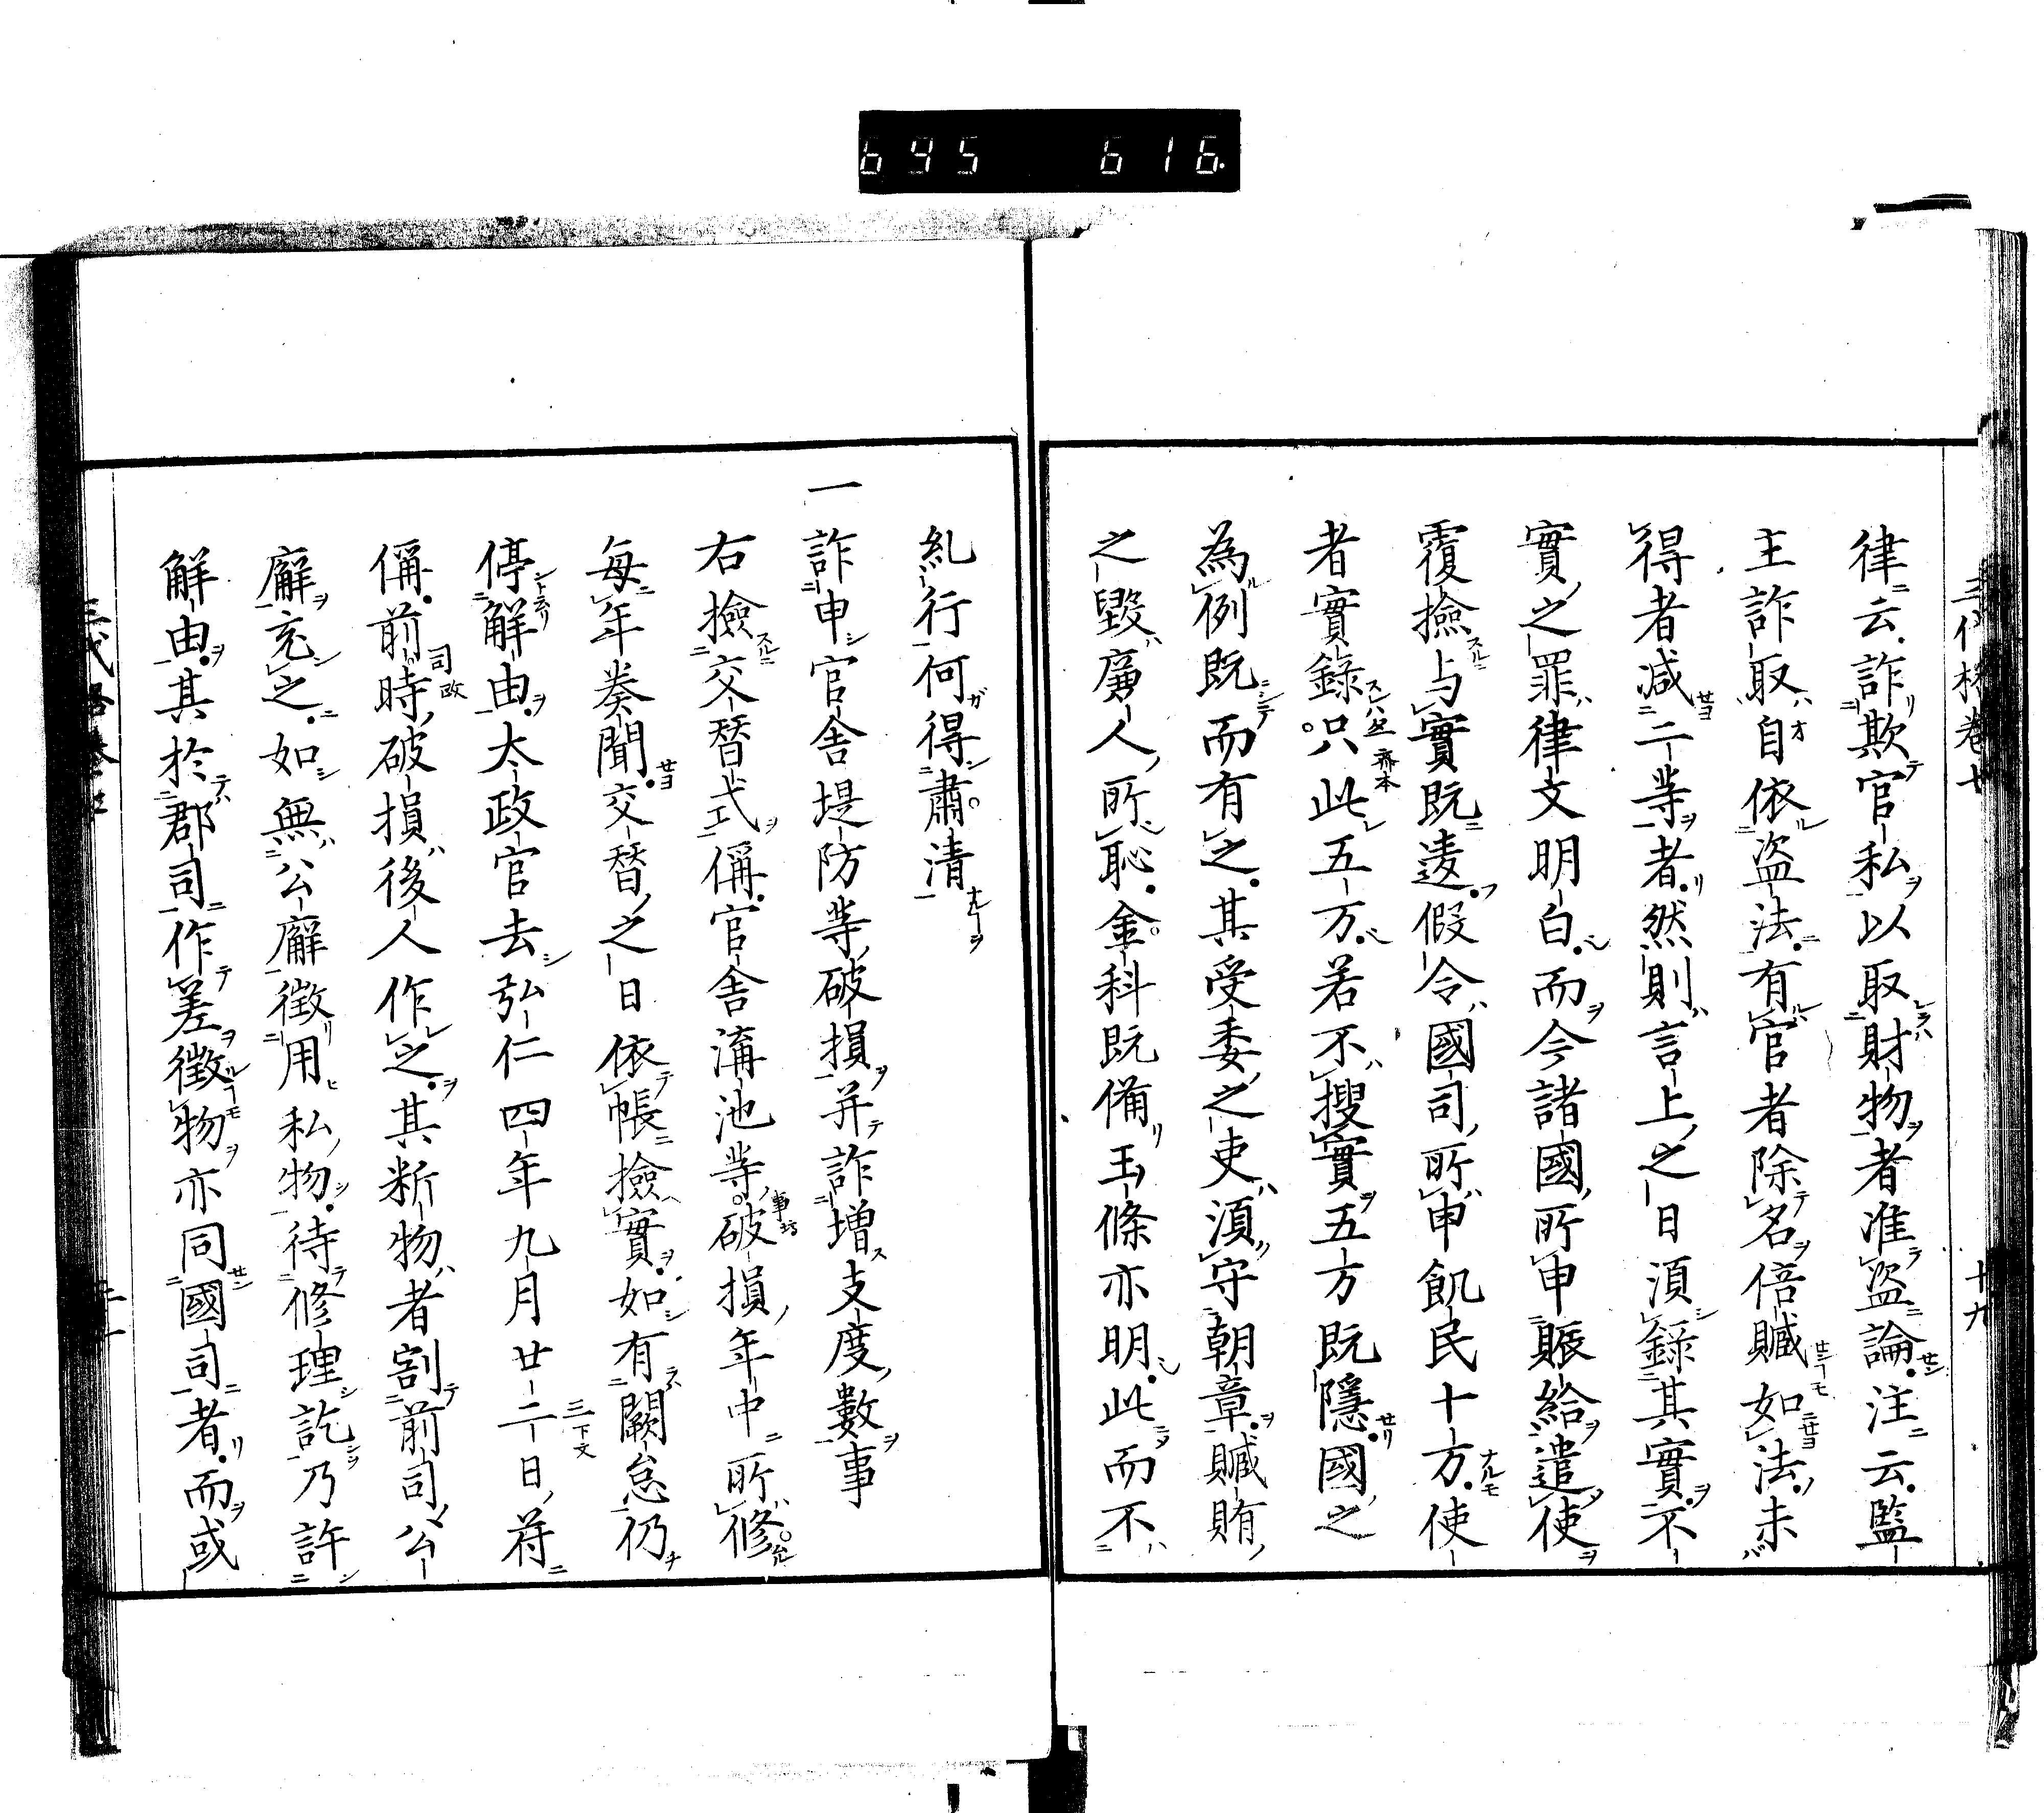 695 616
律云詐欺官私以取財物者准盗論注云監
主詐取自依盗法有官者除名倍贓如法未
得者减二等者然則言上之日須録其實不
實之罪律文明白而今諸國所申賑給遣使
覆撿与實既逺假令國司所申飢民十万使
者實録只此五万若不搜實五万既隱國之
為例既而有之其受委之吏須守朝章贓賄
之毀廣人所恥金科既備玉條亦明此而不
糺行何得肅清
一詐申官舎堤防等破損并詐増支度數事
右撿交替式偁官舎溝池等破損年中所修
毎年奏聞交替之日依帳撿實如有闕怠仍
停解由太政官去弘仁四年九月廿二日符
偁前時破損後人作之其新物者割前司公
廨充之如無公廨徴用私物待修理訖乃許
解由其於郡司作差徴物亦同國司者而或